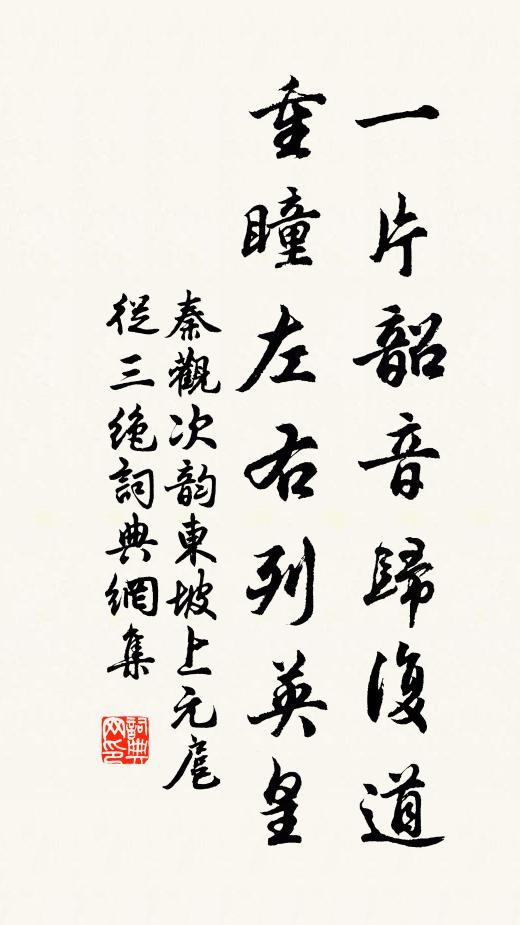 一片韶音歸復道
重瞳左右列英皇
秦觀次韵東坡上元扈
從三絶詞典網集
詞典
网印